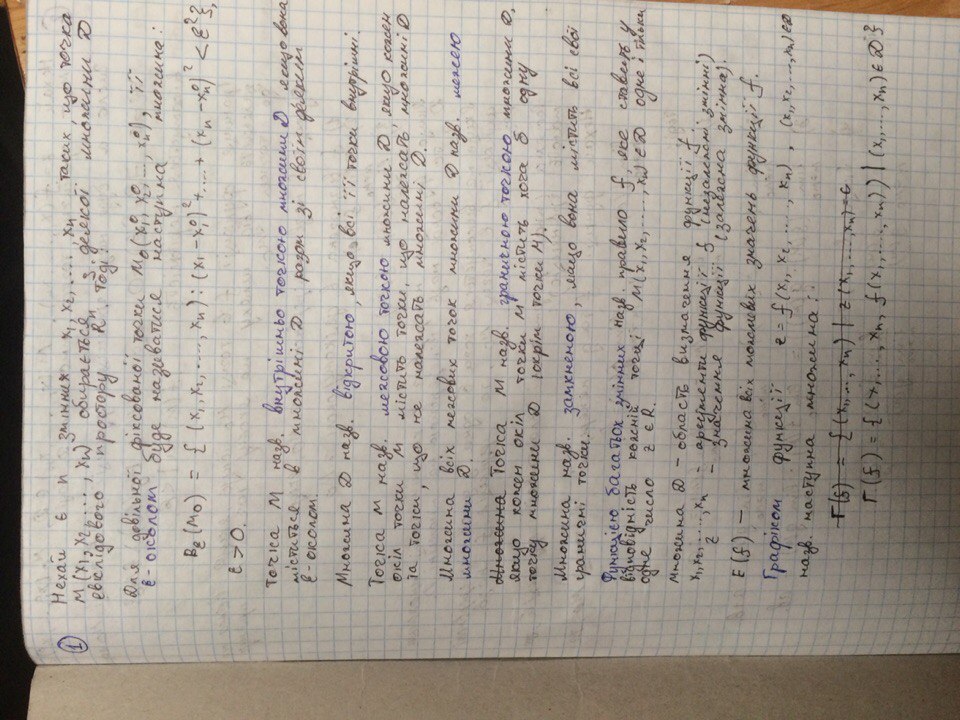 1 Нехай є n змінних x₁, x₂, ...., xₙ таких, що точка
M(x₁, x₂, ..., xₙ) обирається з деякої множини D
евклідового простору Rⁿ. Тоді:
Для довільної фіксованої точки M₀(x₁⁰, x₂⁰, ..., xₙ⁰), її
ε-околом буде називатися наступна множина:
B_ε(M₀) = { (x₁, x₂, ...., xₙ) : (x₁-x₁⁰)²+....+ (xₙ-xₙ⁰)² < ε²},
ε>0.
Точка M назв. внутрішньо точкою множини D, якщо вона
міститься в множині D разом зі своїм деяким
ε-околом.
Множина D назв. відкритою, якщо всі її точки внутрішні.
Точка M назв. межовою точкою множини D, якщо кожен
окіл точки M містить точки, що належать множині D
та точки, що не належать множині D.
Множина всіх межових точок множини D назв. межею
множини D.
Множина Точка M назв. граничною точкою множини D,
якщо кожен окіл точки M містить хоча б одну
точку множини D (окрім точки M).
Множина назв. замкненою, якщо вона містить всі свої
граничні точки.
Функцією багатьох змінних назв. правило f, яке ставить у
відповідність кожній точці M(x₁, x₂, ...., xₙ) ∈ D одне і тільки
одне число z ∈ R.
Множина D – область визначення функції f.
x₁, x₂, ...., xₙ – аргументи функції f (незалежні змінні)
z – значення функції (залежна змінна).
E(f) – множина всіх можливих значень функції f.
Графіком функції z = f(x₁, x₂, ....., xₙ), (x₁, x₂, ..., xₙ) ∈ D
назв. наступна множина:
Г(f) = { (x₁, ..., xₙ) | z(x₁, ..., xₙ) = c
Г(f) = { (x₁, ..., xₙ, f(x₁, ...., xₙ)) | (x₁, ..., xₙ) ∈ D }